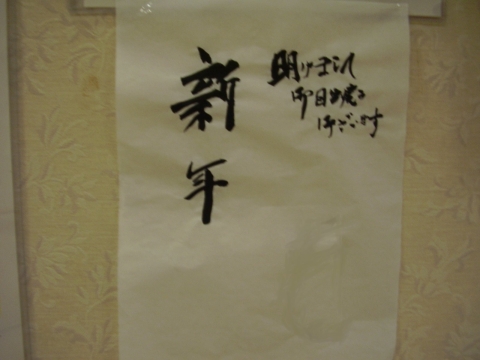 明けまして
御目出度う
ございます
新年